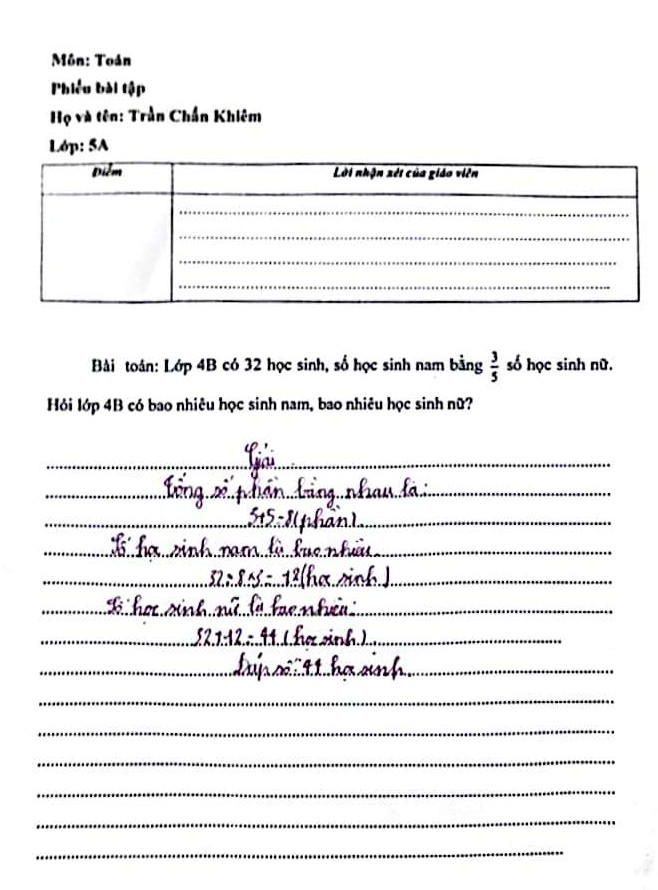 Môn: Toán
Phiếu bài tập
Họ và tên: Trần Chấn Khiêm
Lớp: 5A
Điểm
Lời nhận xét của giáo viên
Bài toán: Lớp 4B có 32 học sinh, số học sinh nam bằng 3/5 số học sinh nữ.
Hỏi lớp 4B có bao nhiêu học sinh nam, bao nhiêu học sinh nữ?
Giải
Tổng số phần bằng nhau là:
5+5=8(phần)
Số học sinh nam là bao nhiêu
32:8×3= 12(học sinh)
Số học sinh nữ là bao nhiêu:
32+12=44 (học sinh)
Đáp số: 44 học sinh.